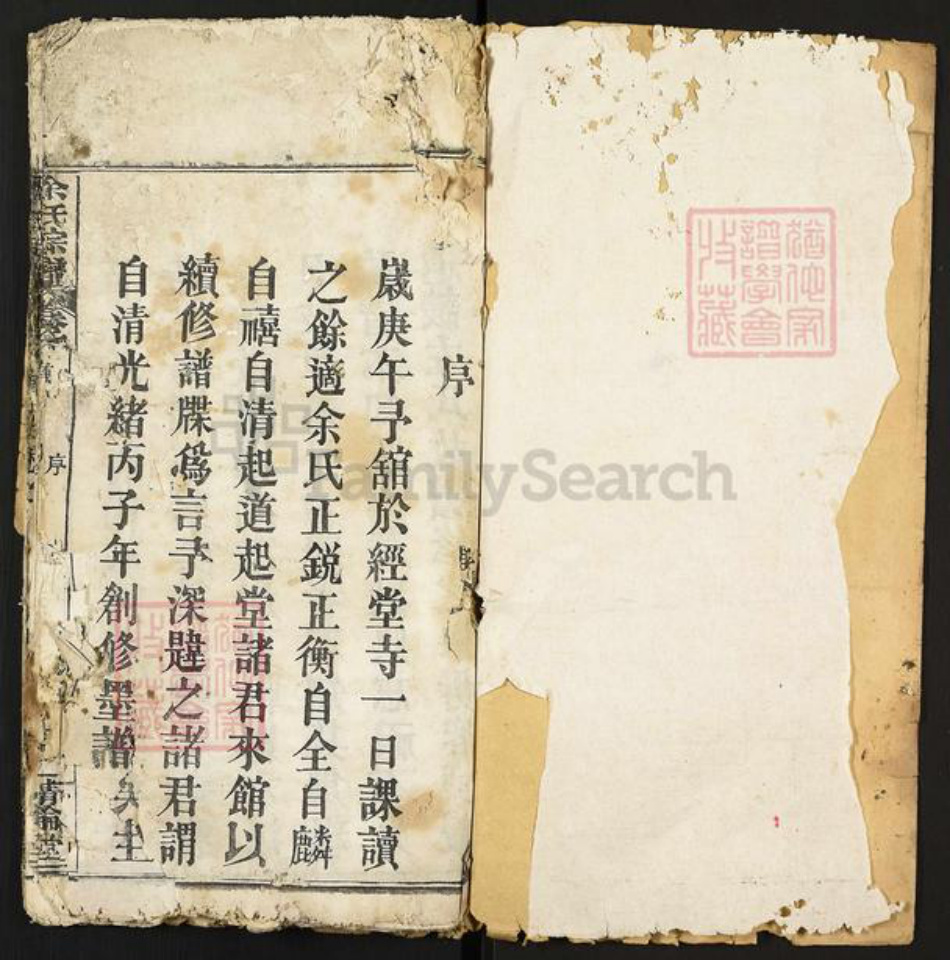 序
歲庚午予舘於經堂寺一日課讀
之餘適余氏正銳正衡自全自麟
自禧自清起道起堂諸君來館以
續修譜牒爲言予深韙之諸君謂
自清光緒丙子年創修墨譜矣主
余氏宗譜
卷
序
清倫堂
猶他家
譜學會
收藏
FamilySearch